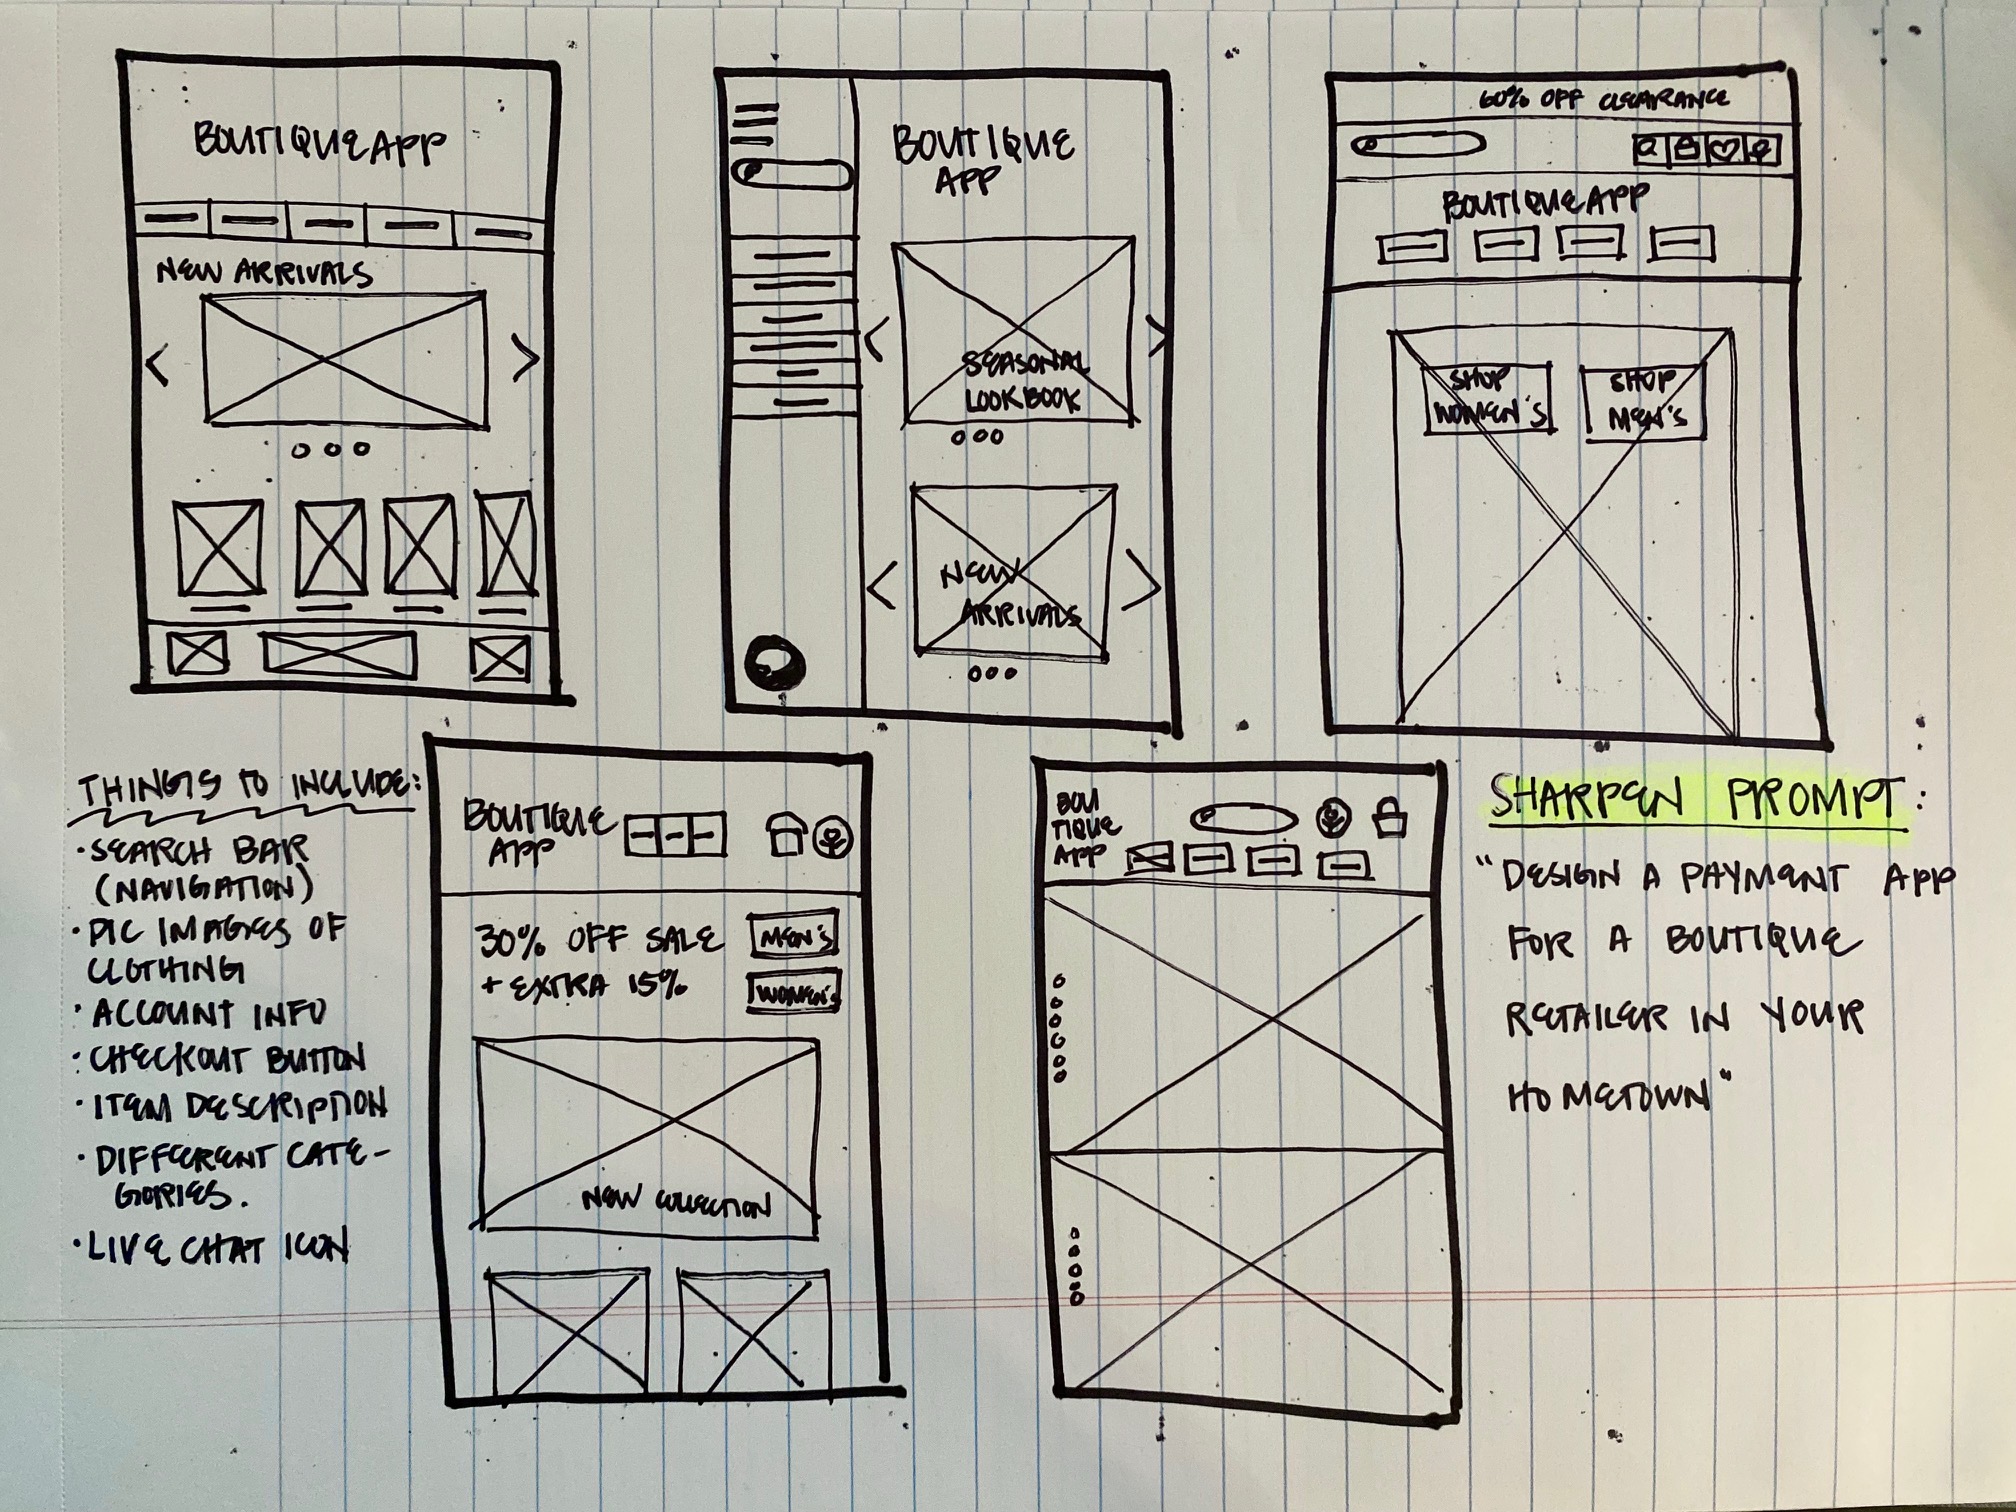 BOUTIQUE APP
NEW ARRIVALS
BOUTIQUE
APP
SEASONAL
LOOKBOOK
NEW
ARRIVALS
60% OFF CLEARANCE
BOUTIQUE APP
SHOP
WOMEN'S
SHOP
MEN'S
THINGS TO INCLUDE:
• SEARCH BAR
(NAVIGATION)
• PIC IMAGES OF
CLOTHING
• ACCOUNT INFO
• CHECKOUT BUTTON
• ITEM DESCRIPTION
• DIFFERENT CATE-
GORIES.
• LIVE CHAT ICON
BOUTIQUE
APP
30% OFF SALE
+ EXTRA 15%
MEN'S
WOMEN'S
NEW COLLECTION
BOU
TIQUE
APP
SHARPEN PROMPT:
"DESIGN A PAYMENT APP
FOR A BOUTIQUE
RETAILER IN YOUR
HOMETOWN"